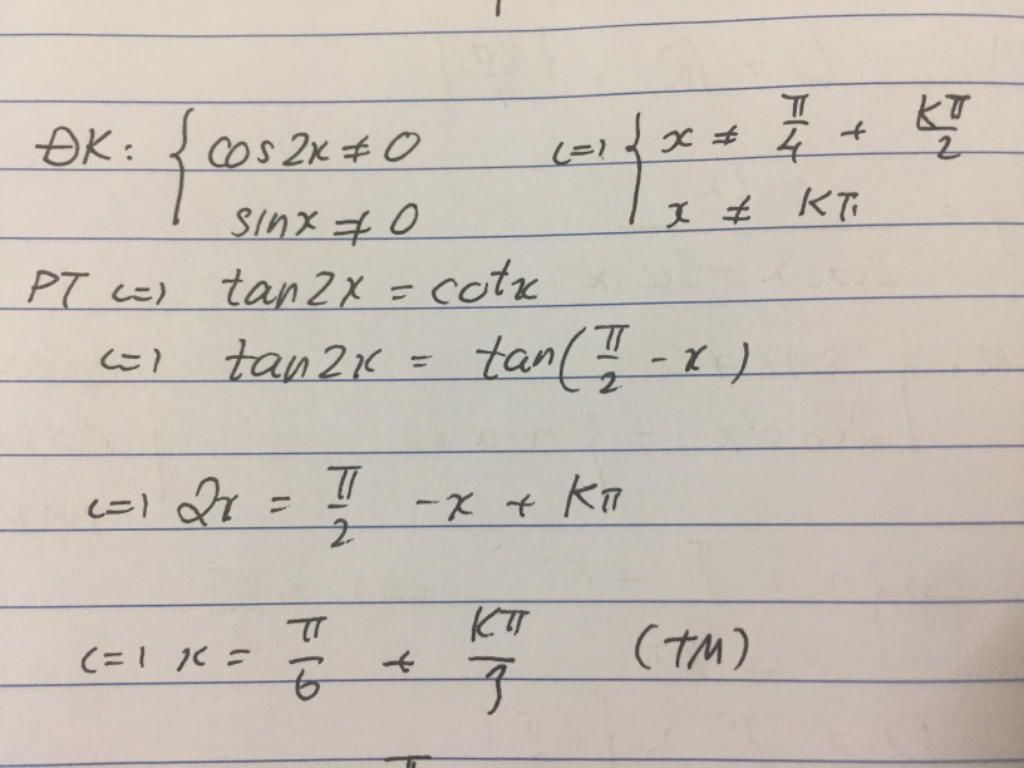 ĐK: { cos2x ≠ 0 <=> { x ≠ π/4 + Kπ/2
sinx ≠ 0 x ≠ Kπ
PT <=> tan2x = cotx
<=> tan2x = tan(π/2 - x)
<=> 2x = π/2 - x + Kπ
<=> x = π/6 + Kπ/3 (TM)